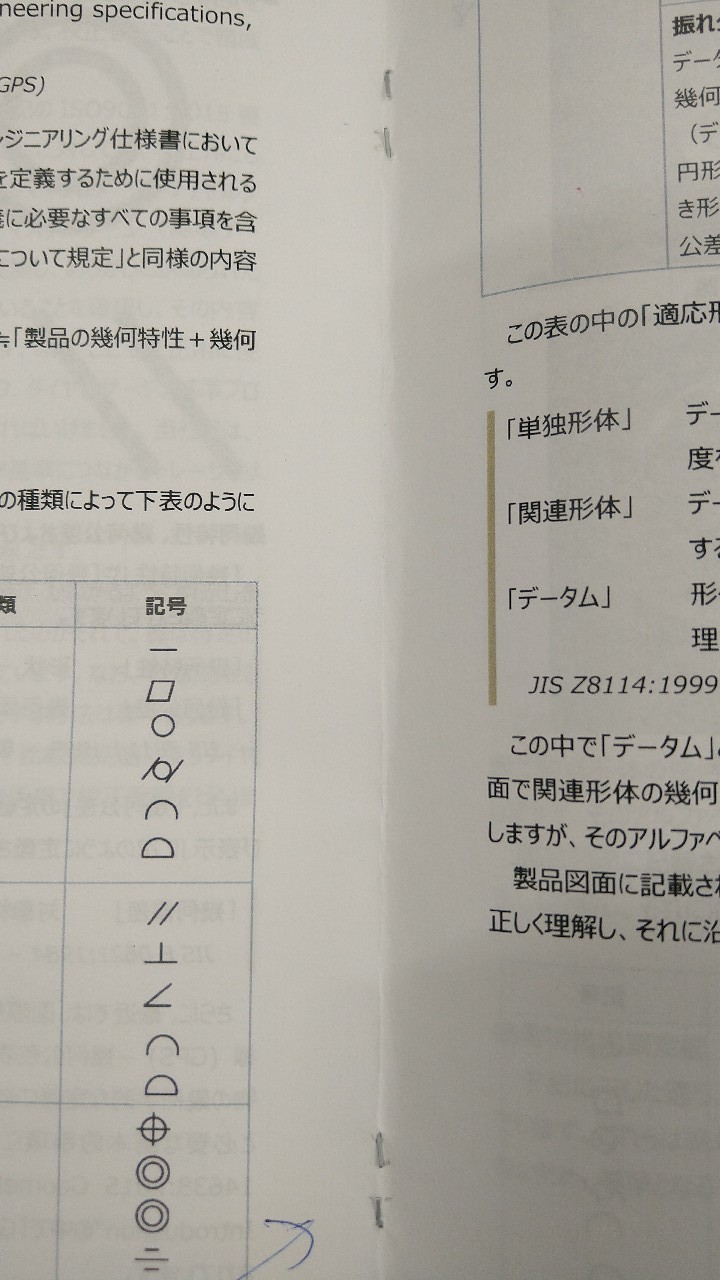 neering specifications,
GPS)
ジニアリング仕様書において
を定義するために使用される
に必要なすべての事項を含
について規定」と同様の内容
≒「製品の幾何特性＋幾何
の種類によって下表のように
類 記号
―
▱
○
⌭
⌒
⌓
//
⊥
∠
⌒
⌓
⌖
◎
◎
⌯
振れ
デー
幾何
（デ
円形
き形
公差
この表の中の「適応形
す。
「単独形体」 デー
度
「関連形体」 デー
する
「データム」 形
理
JIS Z8114:1999
この中で「データム」
面で関連形体の幾何
しますが、そのアルファベ
製品図面に記載され
正しく理解し、それに沿